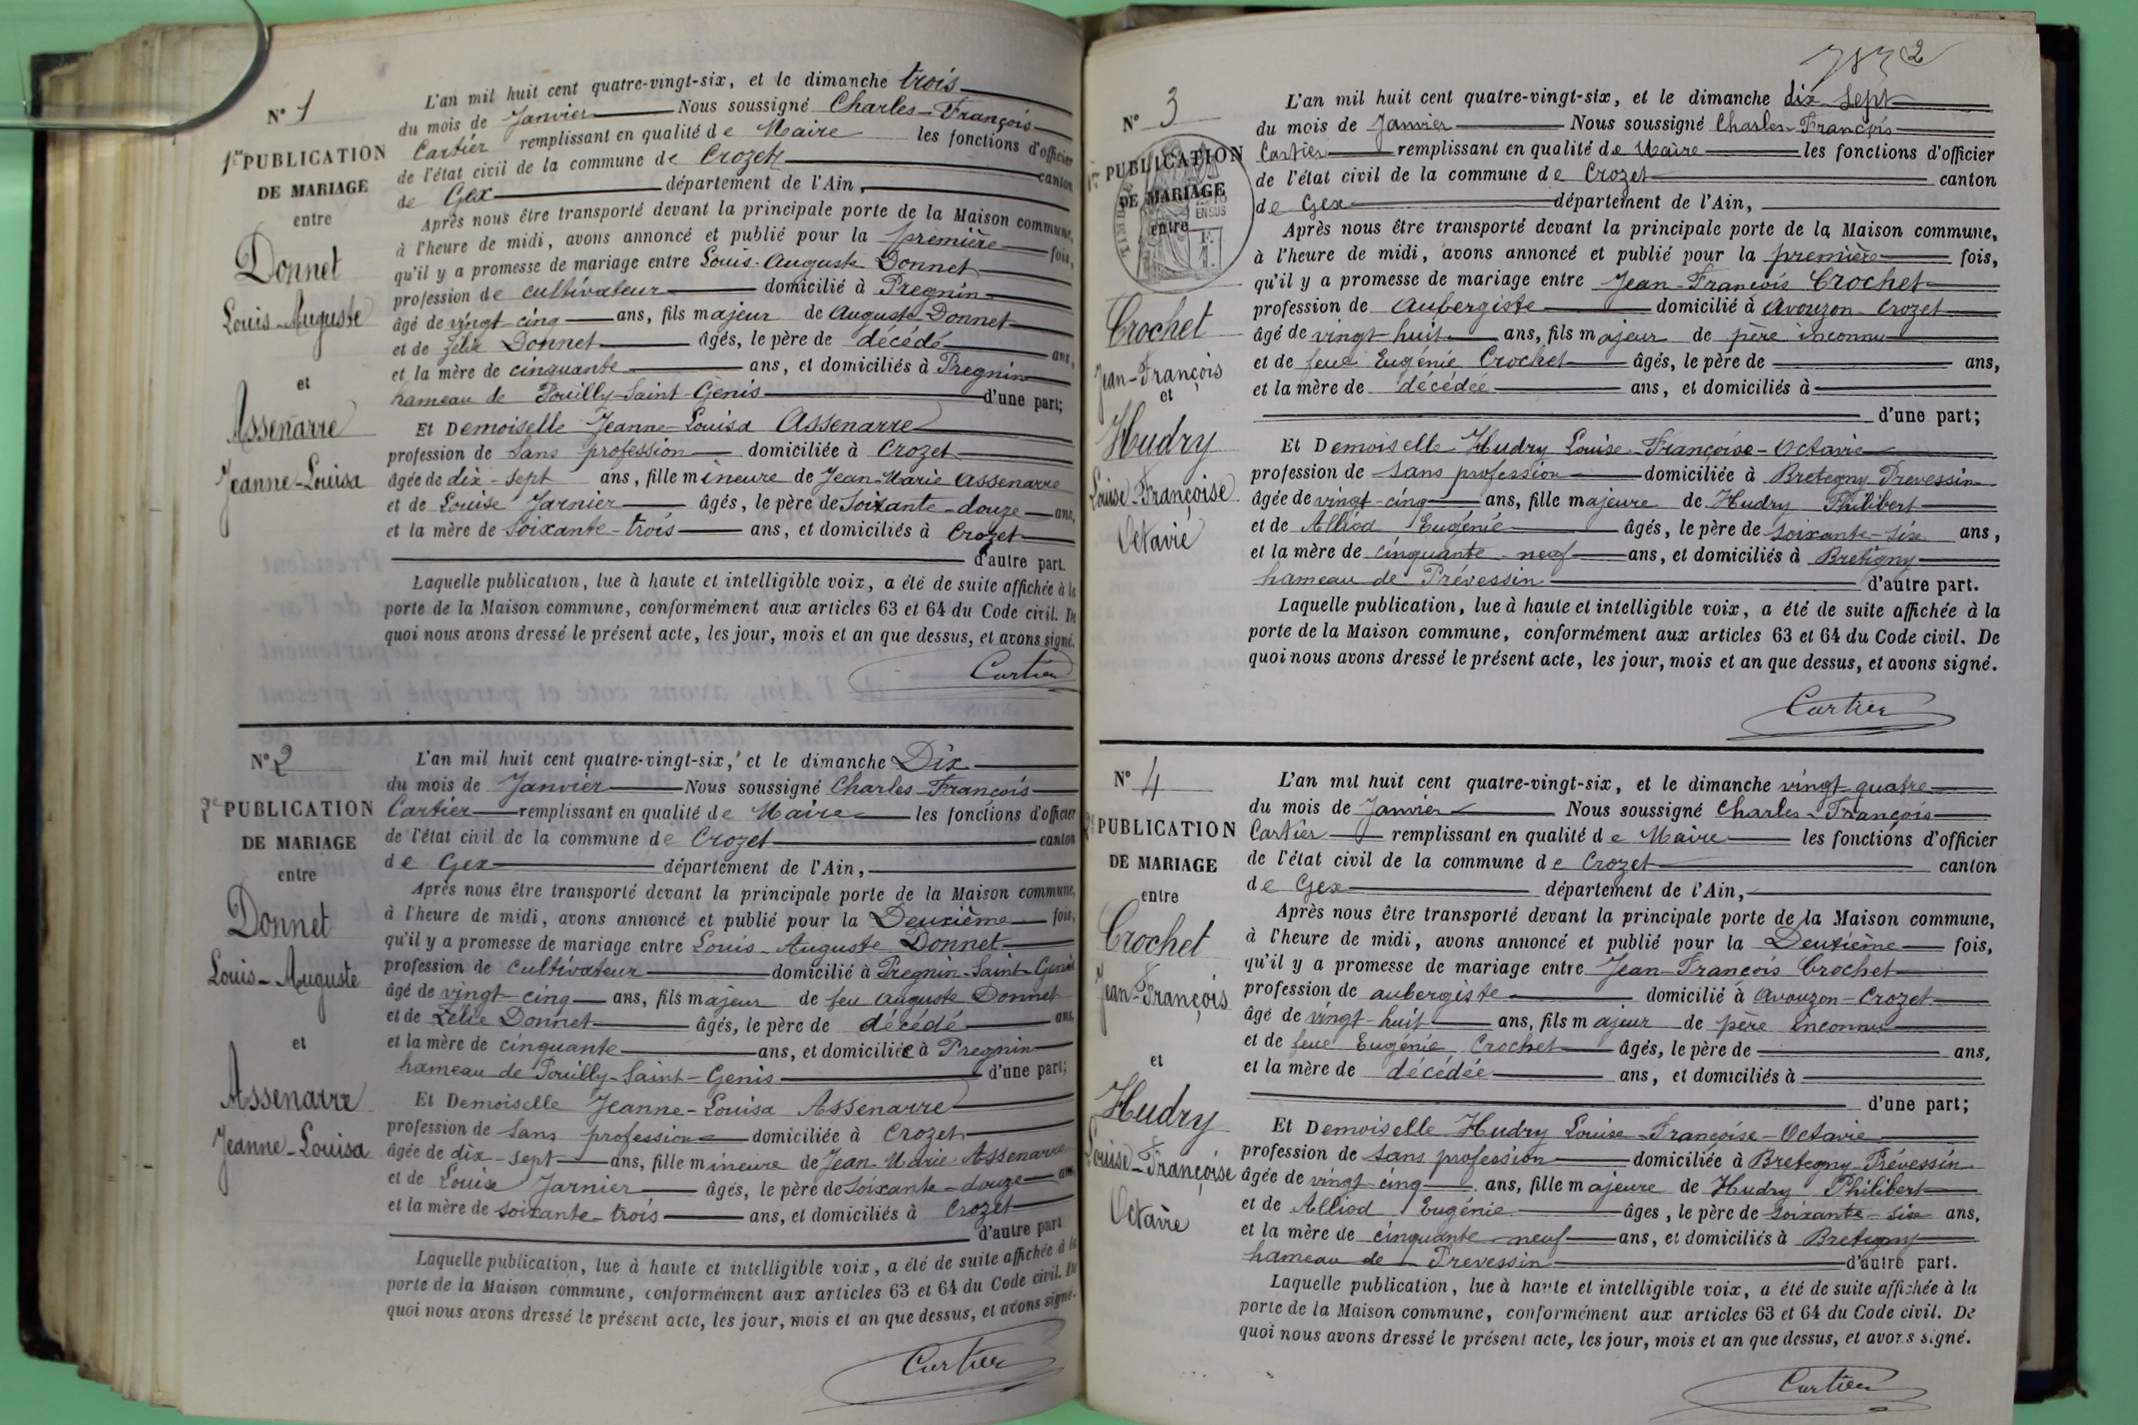 N° 1
1re PUBLICATION
DE MARIAGE
entre
Donnet
Louis-Auguste
et
Assenarre
Jeanne-Louisa
L'an mil huit cent quatre-vingt-six, et le dimanche trois
du mois de Janvier Nous soussigné Charles-François
Cartier remplissant en qualité de Maire les fonctions d'officier
de l'état civil de la commune de Crozet canton
de Gex département de l'Ain,
Après nous être transporté devant la principale porte de la Maison commune,
à l'heure de midi, avons annoncé et publié pour la première fois,
qu'il y a promesse de mariage entre Louis-Auguste Donnet
profession de cultivateur domicilié à Pregnin
âgé de vingt-cinq ans, fils majeur de Auguste Donnet
et de Zélie Donnet âgés, le père de décédé ans,
et la mère de cinquante ans, et domiciliés à Pregnin
hameau de Pouilly-Saint-Genis d'une part;
Et Demoiselle Jeanne-Louisa Assenarre
profession de sans profession domiciliée à Crozet
âgée de dix-sept ans, fille mineure de Jean-Marie Assenarre
et de Louise Jarnier âgés, le père de soixante-douze ans,
et la mère de soixante-trois ans, et domiciliés à Crozet
d'autre part.
Laquelle publication, lue à haute et intelligible voix, a été de suite affichée à la
porte de la Maison commune, conformément aux articles 63 et 64 du Code civil. De
quoi nous avons dressé le présent acte, les jour, mois et an que dessus, et avons signé.
Cartier
N° 2
2e PUBLICATION
DE MARIAGE
entre
Donnet
Louis-Auguste
et
Assenarre
Jeanne-Louisa
L'an mil huit cent quatre-vingt-six, et le dimanche Dix
du mois de Janvier Nous soussigné Charles-François
Cartier remplissant en qualité de Maire les fonctions d'officier
de l'état civil de la commune de Crozet canton
de Gex département de l'Ain,
Après nous être transporté devant la principale porte de la Maison commune,
à l'heure de midi, avons annoncé et publié pour la Deuxième fois,
qu'il y a promesse de mariage entre Louis-Auguste Donnet
profession de cultivateur domicilié à Pregnin-Saint-Genis
âgé de vingt-cinq ans, fils majeur de feu Auguste Donnet
et de Zélie Donnet âgés, le père de décédé ans,
et la mère de cinquante ans, et domiciliée à Pregnin
hameau de Pouilly-Saint-Genis d'une part;
Et Demoiselle Jeanne-Louisa Assenarre
profession de sans profession domiciliée à Crozet
âgée de dix-sept ans, fille mineure de Jean-Marie Assenarre
et de Louise Jarnier âgés, le père de soixante-douze ans
et la mère de soixante-trois ans, et domiciliés à Crozet
d'autre part
Laquelle publication, lue à haute et intelligible voix, a été de suite affichée à la
porte de la Maison commune, conformément aux articles 63 et 64 du Code civil. De
quoi nous avons dressé le présent acte, les jour, mois et an que dessus, et avons signé.
Cartier
2
N° 3
1re PUBLICATION
DE MARIAGE
entre
Crochet
Jean-François
et
Hudry
Louise-Françoise
Octavie
L'an mil huit cent quatre-vingt-six, et le dimanche dix sept
du mois de Janvier Nous soussigné Charles-François
Cartier remplissant en qualité de Maire les fonctions d'officier
de l'état civil de la commune de Crozet canton
de Gex département de l'Ain,
Après nous être transporté devant la principale porte de la Maison commune,
à l'heure de midi, avons annoncé et publié pour la première fois,
qu'il y a promesse de mariage entre Jean-François Crochet
profession de Aubergiste domicilié à Avouzon-Crozet
âgé de vingt-huit ans, fils majeur de père inconnu
et de feue Eugénie Crochet âgés, le père de ans,
et la mère de décédée ans, et domiciliés à
d'une part;
Et Demoiselle Hudry Louise-Françoise-Octavie
profession de sans profession domiciliée à Bretegny Prevessin
âgée de vingt-cinq ans, fille majeure de Hudry Philibert
et de Alliod Eugénie âgés, le père de soixante-six ans,
et la mère de cinquante-neuf ans, et domiciliés à Bretigny
hameau de Prévessin d'autre part.
Laquelle publication, lue à haute et intelligible voix, a été de suite affichée à la
porte de la Maison commune, conformément aux articles 63 et 64 du Code civil. De
quoi nous avons dressé le présent acte, les jour, mois et an que dessus, et avons signé.
Cartier
N° 4
2e PUBLICATION
DE MARIAGE
entre
Crochet
Jean-François
et
Hudry
Louise-Françoise
Octavie
L'an mil huit cent quatre-vingt-six, et le dimanche vingt-quatre
du mois de Janvier Nous soussigné Charles-François
Cartier remplissant en qualité de Maire les fonctions d'officier
de l'état civil de la commune de Crozet canton
de Gex département de l'Ain,
Après nous être transporté devant la principale porte de la Maison commune,
à l'heure de midi, avons annoncé et publié pour la Deuxième fois,
qu'il y a promesse de mariage entre Jean-François Crochet
profession de aubergiste domicilié à Avouzon-Crozet
âgé de vingt-huit ans, fils majeur de père inconnu
et de feue Eugénie Crochet âgés, le père de ans,
et la mère de décédée ans, et domiciliés à
d'une part;
Et Demoiselle Hudry Louise-Françoise-Octavie
profession de sans profession domiciliée à Bretegny-Prévessin
âgée de vingt-cinq ans, fille majeure de Hudry Philibert
et de Alliod Eugénie âgés, le père de soixante-six ans,
et la mère de cinquante neuf ans, et domiciliés à Bretegny
hameau de Prevessin d'autre part.
Laquelle publication, lue à haute et intelligible voix, a été de suite affichée à la
porte de la Maison commune, conformément aux articles 63 et 64 du Code civil. De
quoi nous avons dressé le présent acte, les jour, mois et an que dessus, et avons signé.
Cartier